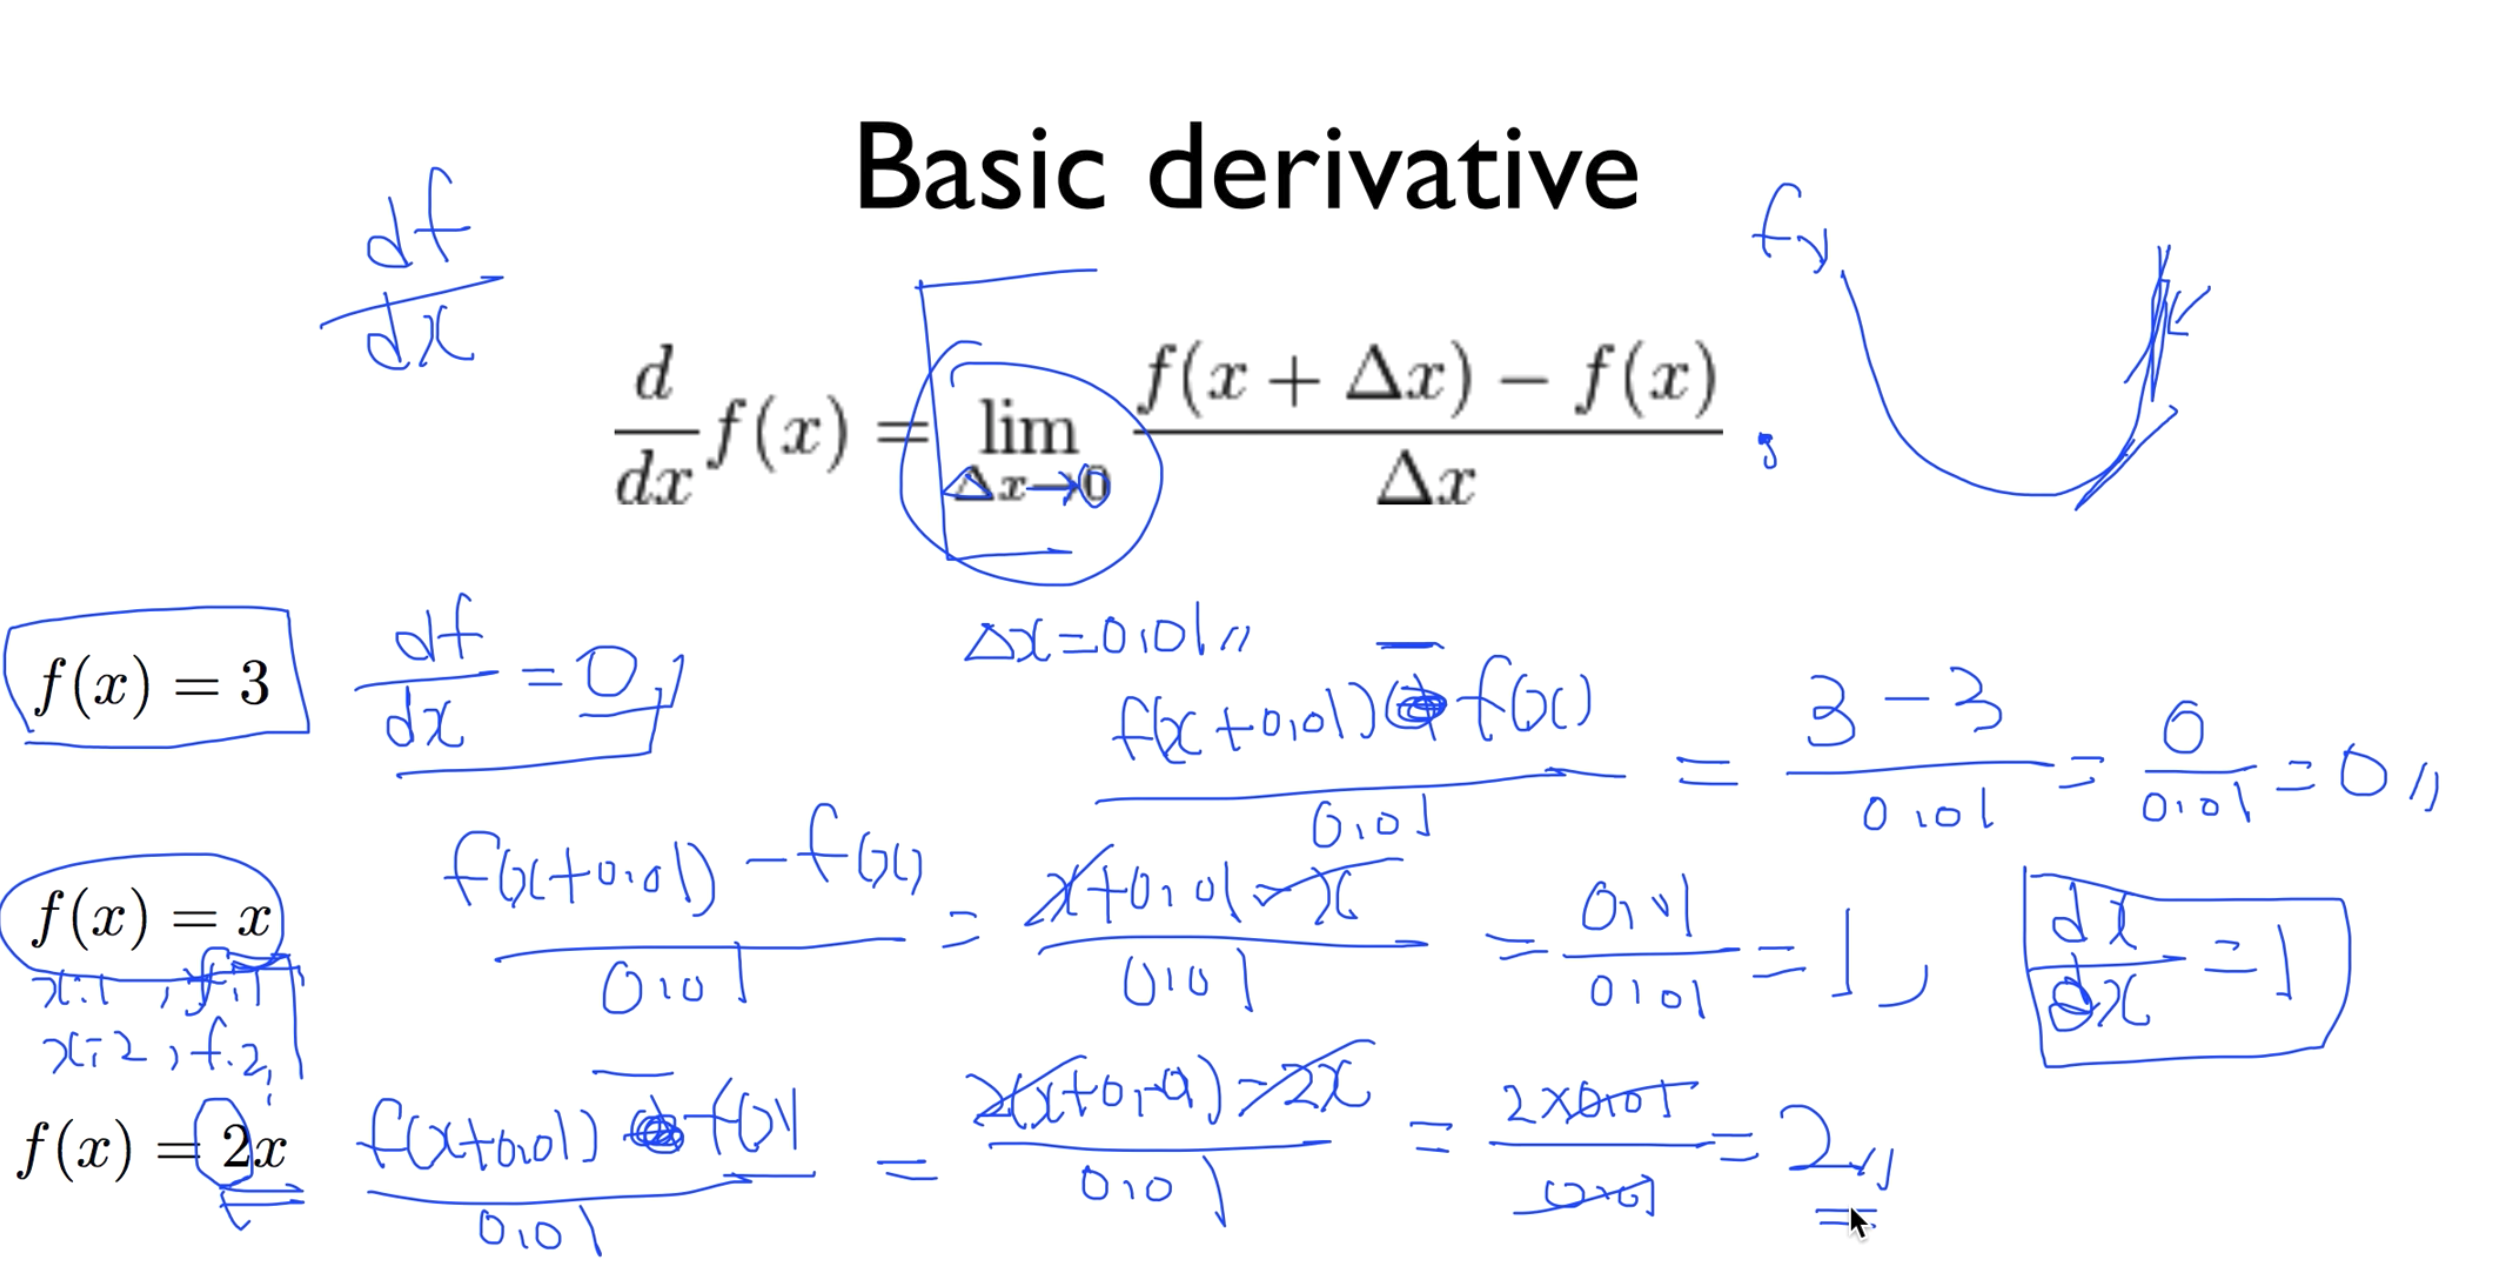 Basic derivative
df/dx
fx
d/dx f(x) = lim Δx→0 (f(x + Δx) − f(x))/Δx
Δx=0.01
f(x) = 3
df/dx = 0
(f(x+0.01) - f(x))/0.01 = (3 - 3)/0.01 = 0/0.01 = 0
f(x) = x
(f(x+0.01) - f(x))/0.01 = (x+0.01 - x)/0.01 = 0.01/0.01 = 1
dx/dx = 1
x=1, f=1
x=2, f=2
f(x) = 2x
(f(x+0.01) - f(x))/0.01 = (2(x+0.01) - 2x)/0.01 = (2×0.01)/0.01 = 2